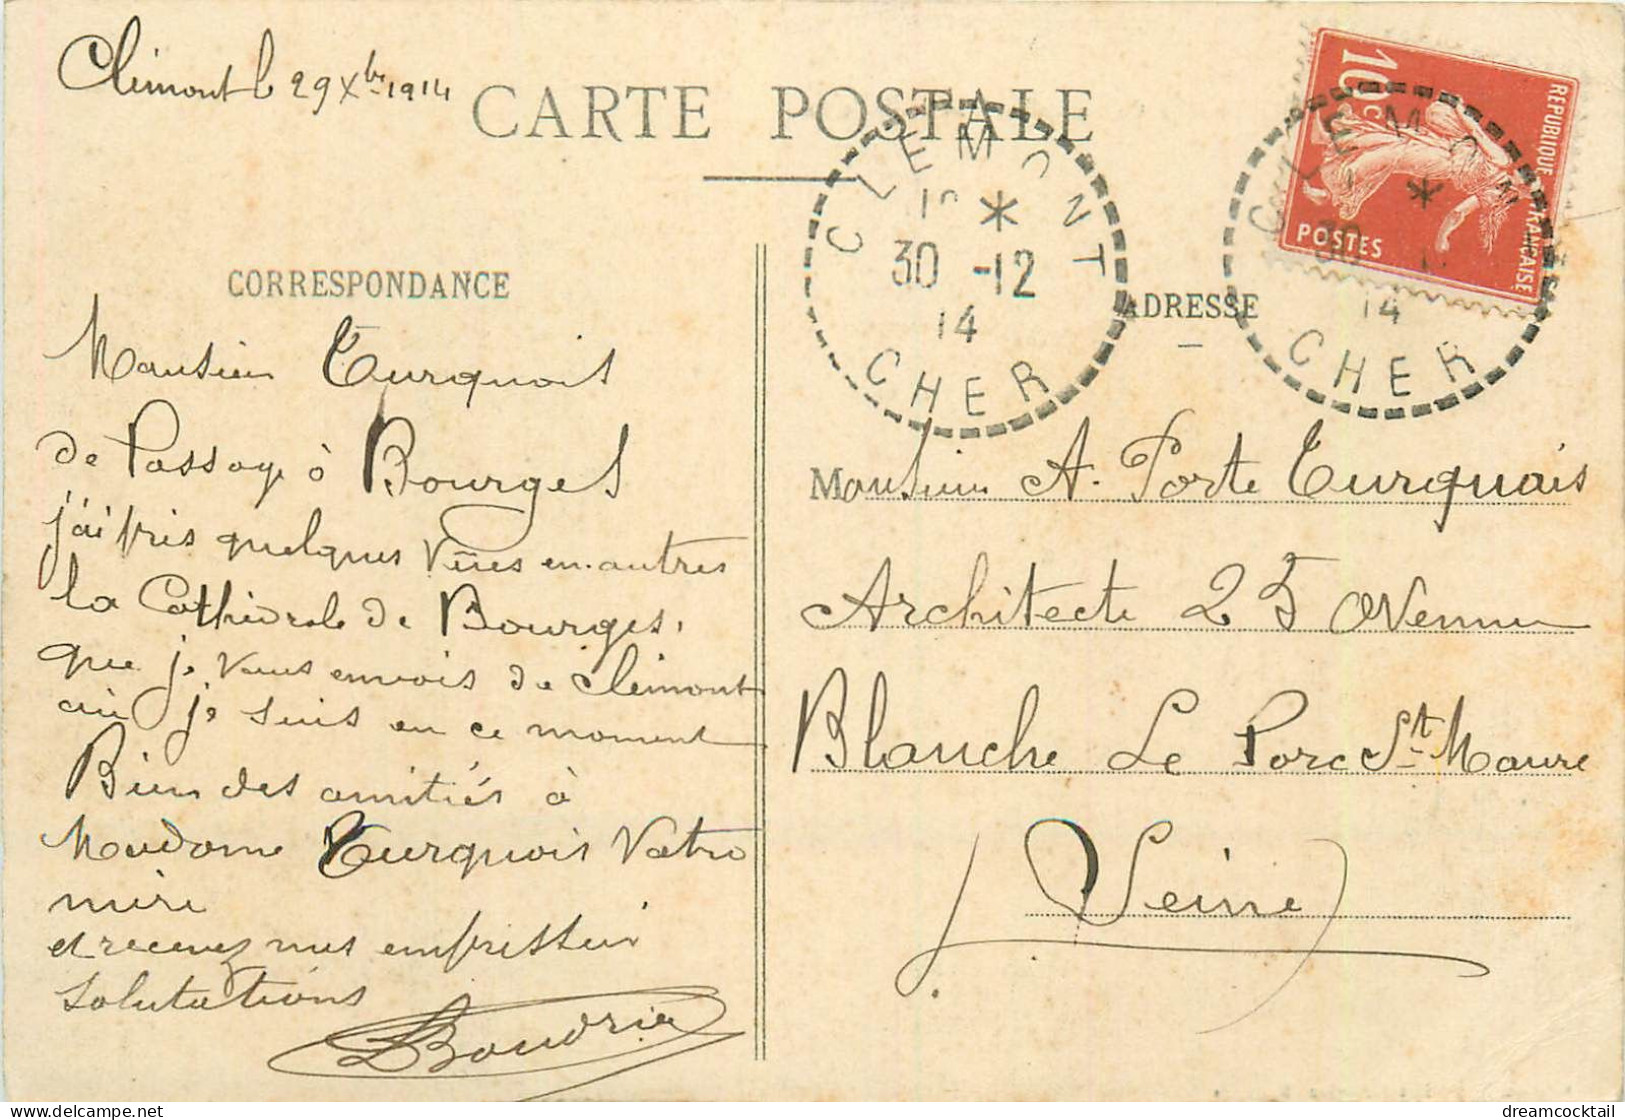 Clémont le 29 Xbre 1914
CARTE POSTALE
CORRESPONDANCE
Monsieur Turquois
de Passage à Bourges
j'ai pris quelques Vües en autres
la Cathédrale de Bourges,
que je vous envois de Clémont
où je suis en ce moment
Bien des amitiés à
Madame Turquois Votre
mère
et recevez mes empressées
Salutations
Boudrie
CLEMONT
*
30 -12
14
CHER
REPUBLIQUE FRANÇAISE
10c
POSTES
CLEMONT
*
30
14
CHER
ADRESSE
Monsieur A. Porte Turquais
Architecte 25 Avenue
Blanche Le Parc St Maure
Seine
dreamcocktail